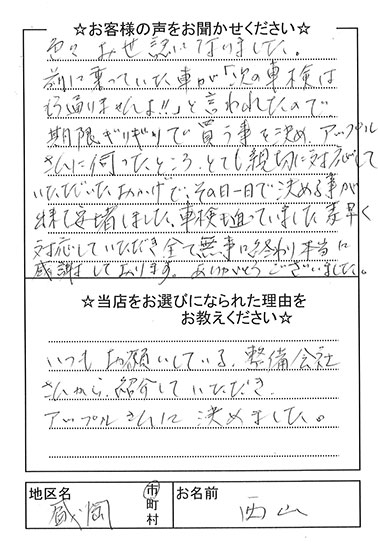 ☆お客様の声をお聞かせください☆
色々お世話になりました。
前に乗っていた車が「次の車検は
もう通りませんよ!!」と言われたので
期限ぎりぎりで買う事を決め、アップル
さんに伺ったところ、とても親切に対応して
いただいたおかげで、その日一日で決める事が
出来安堵しました、車検も迫っていました 素早く
対応していただき全て無事に終わり本当に
感謝しております。ありがとうございました。
☆当店をお選びになられた理由を
お教えください☆
いつもお願いしている、整備会社
さんから、紹介していただき
アップルさんに決めました。
地区名
盛岡
市
町
村
お名前
西山